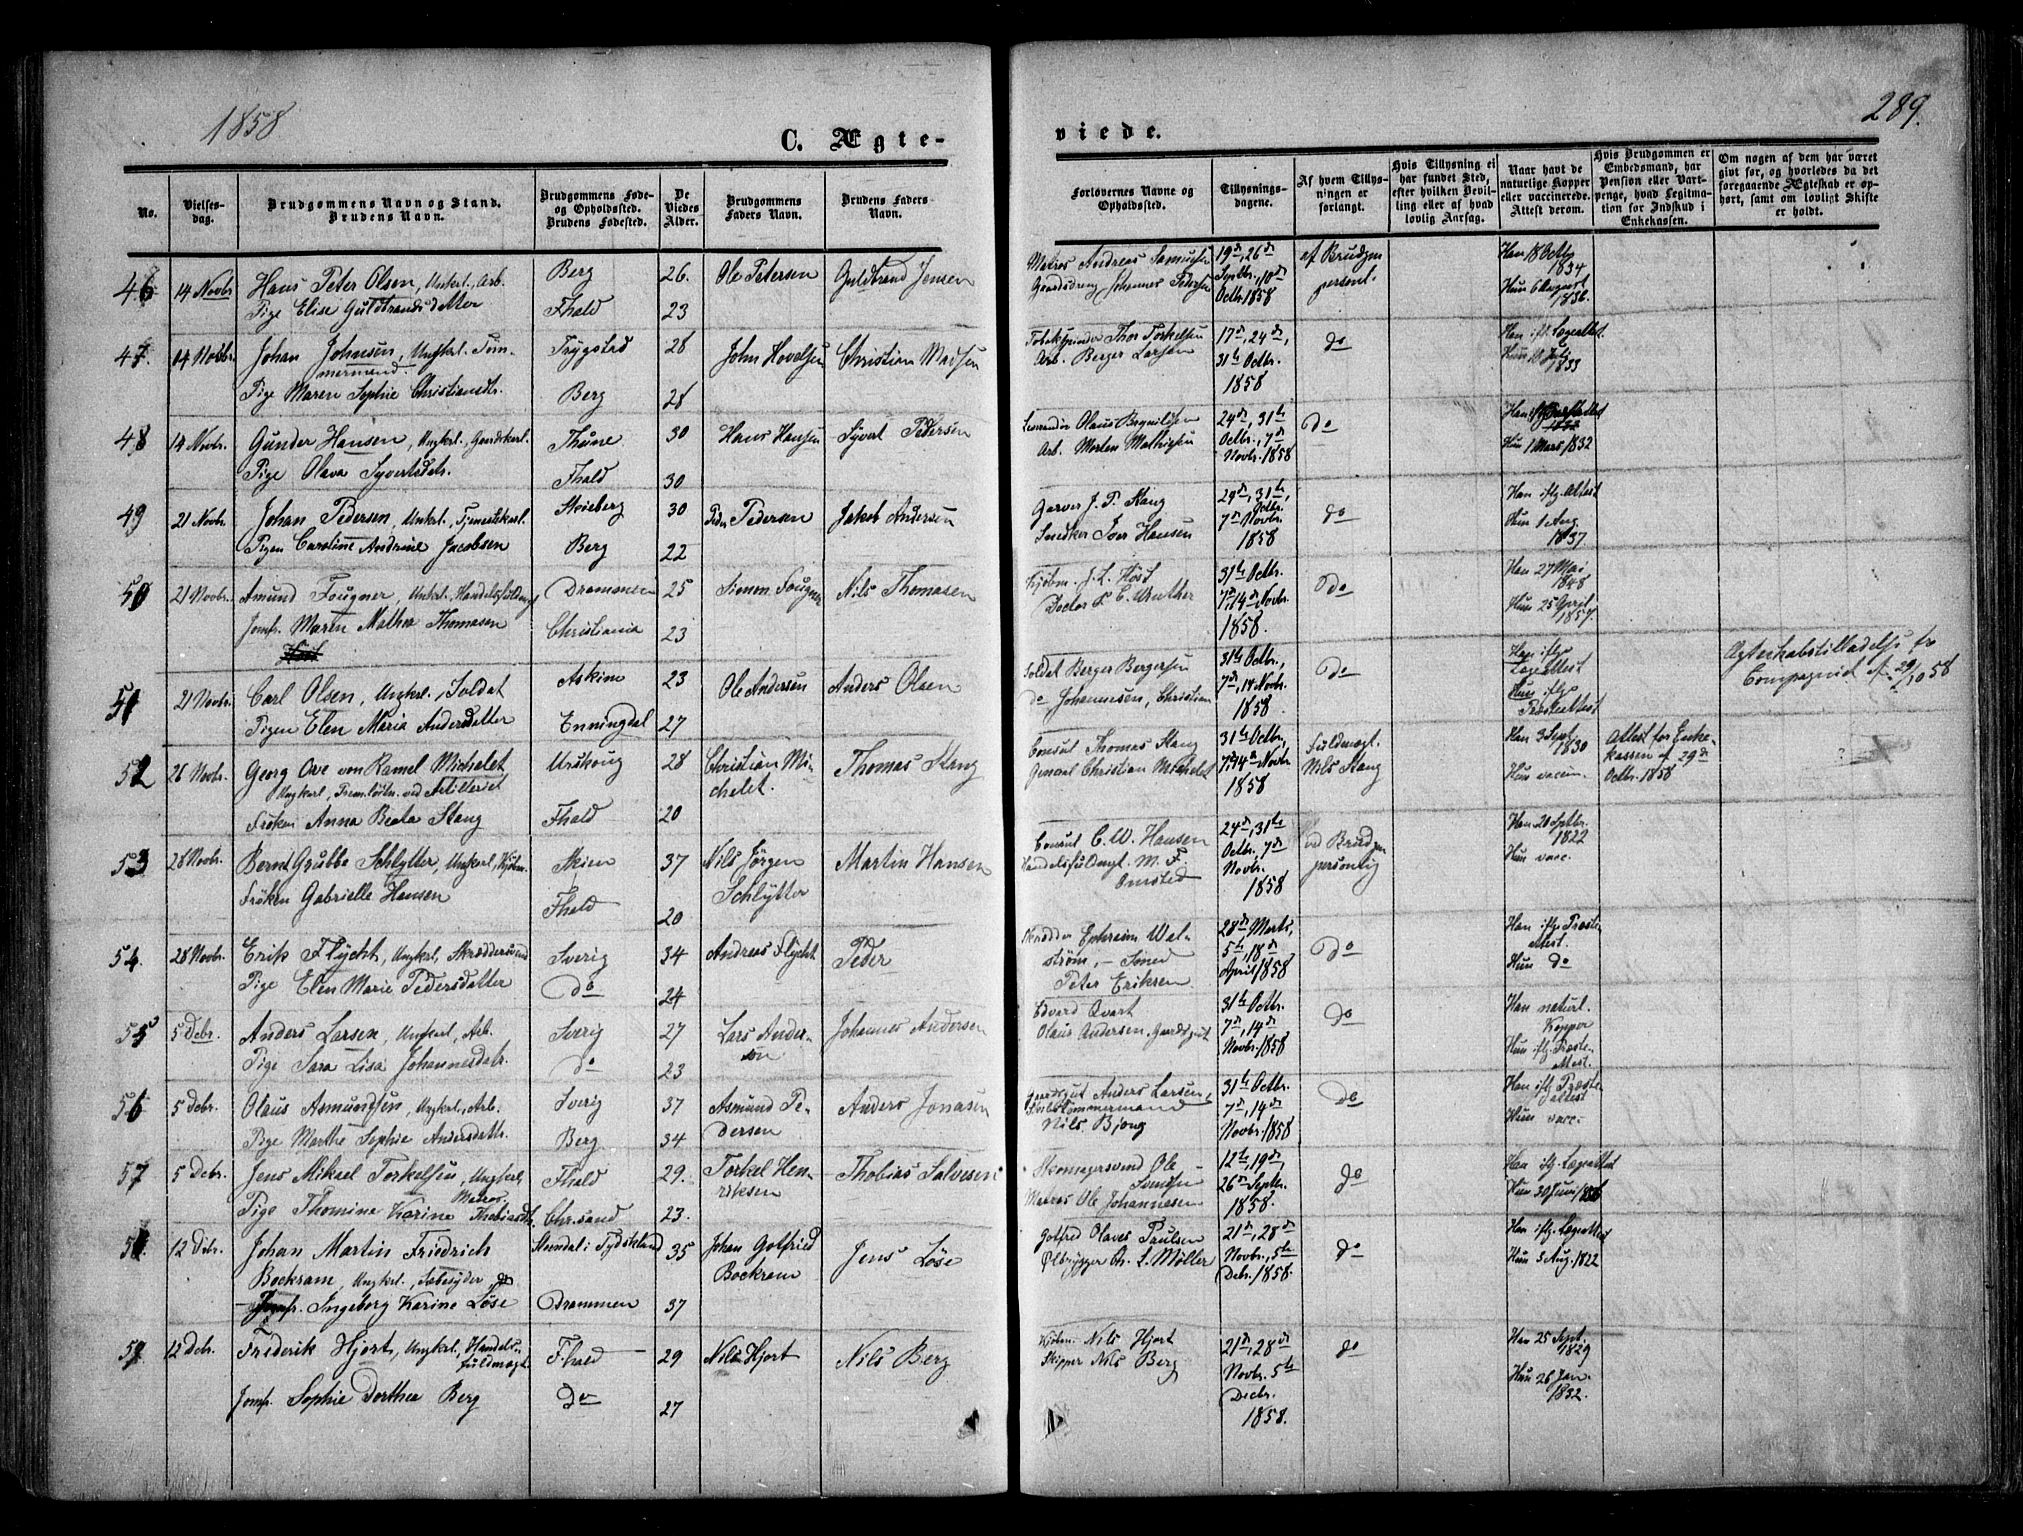 1858
289.
C. Ægte-
viede.
No.
Vielses-
dag.
Brudgommens Navn og Stand.
Brudens Navn.
Brudgommens Føde-
og Opholdssted.
Brudens Fødested.
De
Viedes
Alder.
Brudgommens
Faders Navn.
Brudens Faders
Navn.
Forlovernes Navne og
Opholdssted.
Tillysnings-
dagene.
Af hvem Tillys-
ningen er
forlangt.
Hvis Tillysning ei
har fundet Sted,
efter hvilken Bevil-
ling eller af hvad
lovlig Aarsag.
Naar havt de
naturlige Kopper
eller vaccinerede.
Attest derom.
Hvis Brudgommen er
Embedsmand, har
Pension eller Vart-
penge, hvad Legitima-
tion for Indskud i
Enkekassen.
Om nogen af dem har været
givt før, og hvorledes da det
foregaaende Ægteskab er op-
hørt, samt om lovligt Skifte
er holdt.
46 14 Novbr Hans Peter Olsen, Ungkrl., Arb. Berg 26. Ole Petersen Guldbrand Jensen
Pige Elise Guldbrandsdatter Fhald 23
Matros Andreas Samuelsen 19de, 26de af Brudgm Han 18 Octbr
Gaardsdreng Johannes Pedersen Septbr., 10de personl. 1834
Octbr. 1858 Hun 6 August
1836.
47. 14 Novbr. Johan Johnsen, Ungkrl. Tøm- Trygstad 28 John Hovelsen Christian Madsen
mermand.
Pige Maren Sophie Christiansdtr. Berg 28
Thor Torkelsen 17de, 24de, do Han iflg. Lægeattest
Arb. Berger Larsen 31te Octbr. Hun 10 Juli
1858 1833
48 14 Novbr. Gunder Hansen, Ungkrl., Gaardskarl. Thune 30 Hans Hansen Syvert Pedersen
Pige Olava Syvertsdtr. Fhald 30
Olaus 24de, 31te do
Arb. Morten Mathisen Octbr., 7de Hun 1 Mars 1832
Novbr. 1858
49 21 Novbr Johan Pedersen, Ungkrl., Tjenestekarl. Skieberg 30 Peder Pedersen Jakob Andersen
Pigen Caroline Andrine Jacobsen Berg 22
Garver J. P. Stang 24de, 31te, do Han iflg. Attest
Snedker Iver Hansen Octbr. Hun 1 Aug.
7de Novbr. 1837.
1858
50 21 Novbr. Amund Fougner, Ungkrl. Handelsfuldmægt Drammen 25 Simon Fougner Nils Thomasen
Jomfr. Maren Mathea Thomasen Christiania 23
Kjøbm. J. L. Høst 31te Octbr. Do Han 27 Mai
Doctor 7de, 14de Novbr. 1848
1858. Hun 25 April
1857.
51 21 Novbr. Carl Olsen, Ungkrl., Soldat Askim 23 Ole Andersen Anders Olsen
Pigen Elen Maria Andersdatter Enningdal 27
Soldat Berger Bergersen 31te Octbr. Do Han iflg. Ægteskabstilladelse fra
do Johannesen, Christian 7de, 14 Novbr. Lægeattest Compagniet af 29/10 58
1858. Hun iflg.
Præsteattest
52 26 Novbr. Georg Ove von Ramel Michelet Urskoug 28 Christian Mi- Thomas Stang
Ungkarl, Prem.løitn. ved Artilleriet chelet.
Frøken Anna Beata Stang Fhald 20
Consul Thomas Stang 31te Octbr, Fuldmægt. Han 3 Sept. Attest for Enke-
General Christian Michelet 7de, 14de Novbr Nils Stang 1830 kassen af 29de
1858 Hun vaccin. Octbr. 1858
53 28 Novbr. Bernt Grubbe Schlytter, Ungkrl., Kjøbm. Skien 37 Nils Jörgen Martin Hansen
Frøken Gabrielle Hansen Fhald 20 Schlytter
Consul C. W. Hansen 24de, 31te ved Brudgm Han 20 Septbr.
Handelsfuldmægt. M. F. Octbr. 7de personlig 1822
Omsted Novbr. Hun vacc.
1858
54. 28 Novbr. Erik Flycht, Ungkrl, Skræddersvend Sverig 34 Andreas Flycht Peder
Pige Elen Marie Pedersdatter Do 24
Skrædder Ephraim Wal- 28de Marts, Do Han iflg. Præste-
strøm, – 5te, 18de attest.
Peter Eriksen April 1858 Hun do
55 5 Debr. Anders Larsen, Ungkrl, Arb. Sverig 27 Lars Ander- Johannes Andersen
Pige Sara Lisa Johannesdtr. do 23 sen
Edvard Qvart 31te Octbr. do Han naturl.
Olaus Andersen, Gaardsgut 7de, 14de Kopper
Novbr. 1858 Hun iflg. Præste-
attest.
56 5 Debr. Olaus Asmundsen, Ungkrl., Arb. Sverig 37 Asmund Pe- Anders Jonasen
Pige Marthe Sophie Andersdattr. Berg 34 dersen
Gaardsgut Anders Larsen, 31te Octbr. do Han iflg Præste-
Skibstømmermand 7de, 14de attest
Nils Bjong Novbr. 1858 Hun vacc.
57 5 Debr. Jens Mikael Torkelsen, Ungkrl, Fhald 29. Torkel Hen- Thobias Salvesen
Matros. riksen
Pige Thomine Karine Thobiasdtr. Chr.sand 23.
Skomagersvend Ole 12te, 19de, do Han iflg. Lægeattest
26de Septbr. Hun 30 Juni
Matros Ole Johannesen 1858.
58 12 Debr. Johan Martin Friedrich Stendal i Tydskland 35 Johan Gotfried Jens Löse
Bockram, Ungkrl., Sæbesyder, Bockram
Jomfr. Ingeborg Karine Löse Drammen 37
Gotfred Olaves Paulsen 21de, 28de do Han iflg. Lægeattest
Ølbrygger Chr. L. Møller Novbr., 5te Hun 5 Aug. 1822
Debr. 1858.
59 12 Debr. Frederik Hjort, Ungkrl, Handels- Fhald 29 Nils Hjort Nils Berg
fuldmægt.
Jomfr. Sophie Dorthea Berg Do 27
Kjøbm. Nils Hjort 21de, 28de do Han 25 Sept.
Skipper Nils Berg Novbr. 5te 1829
Decbr. Hun 26 Jan.
1858. 1832.